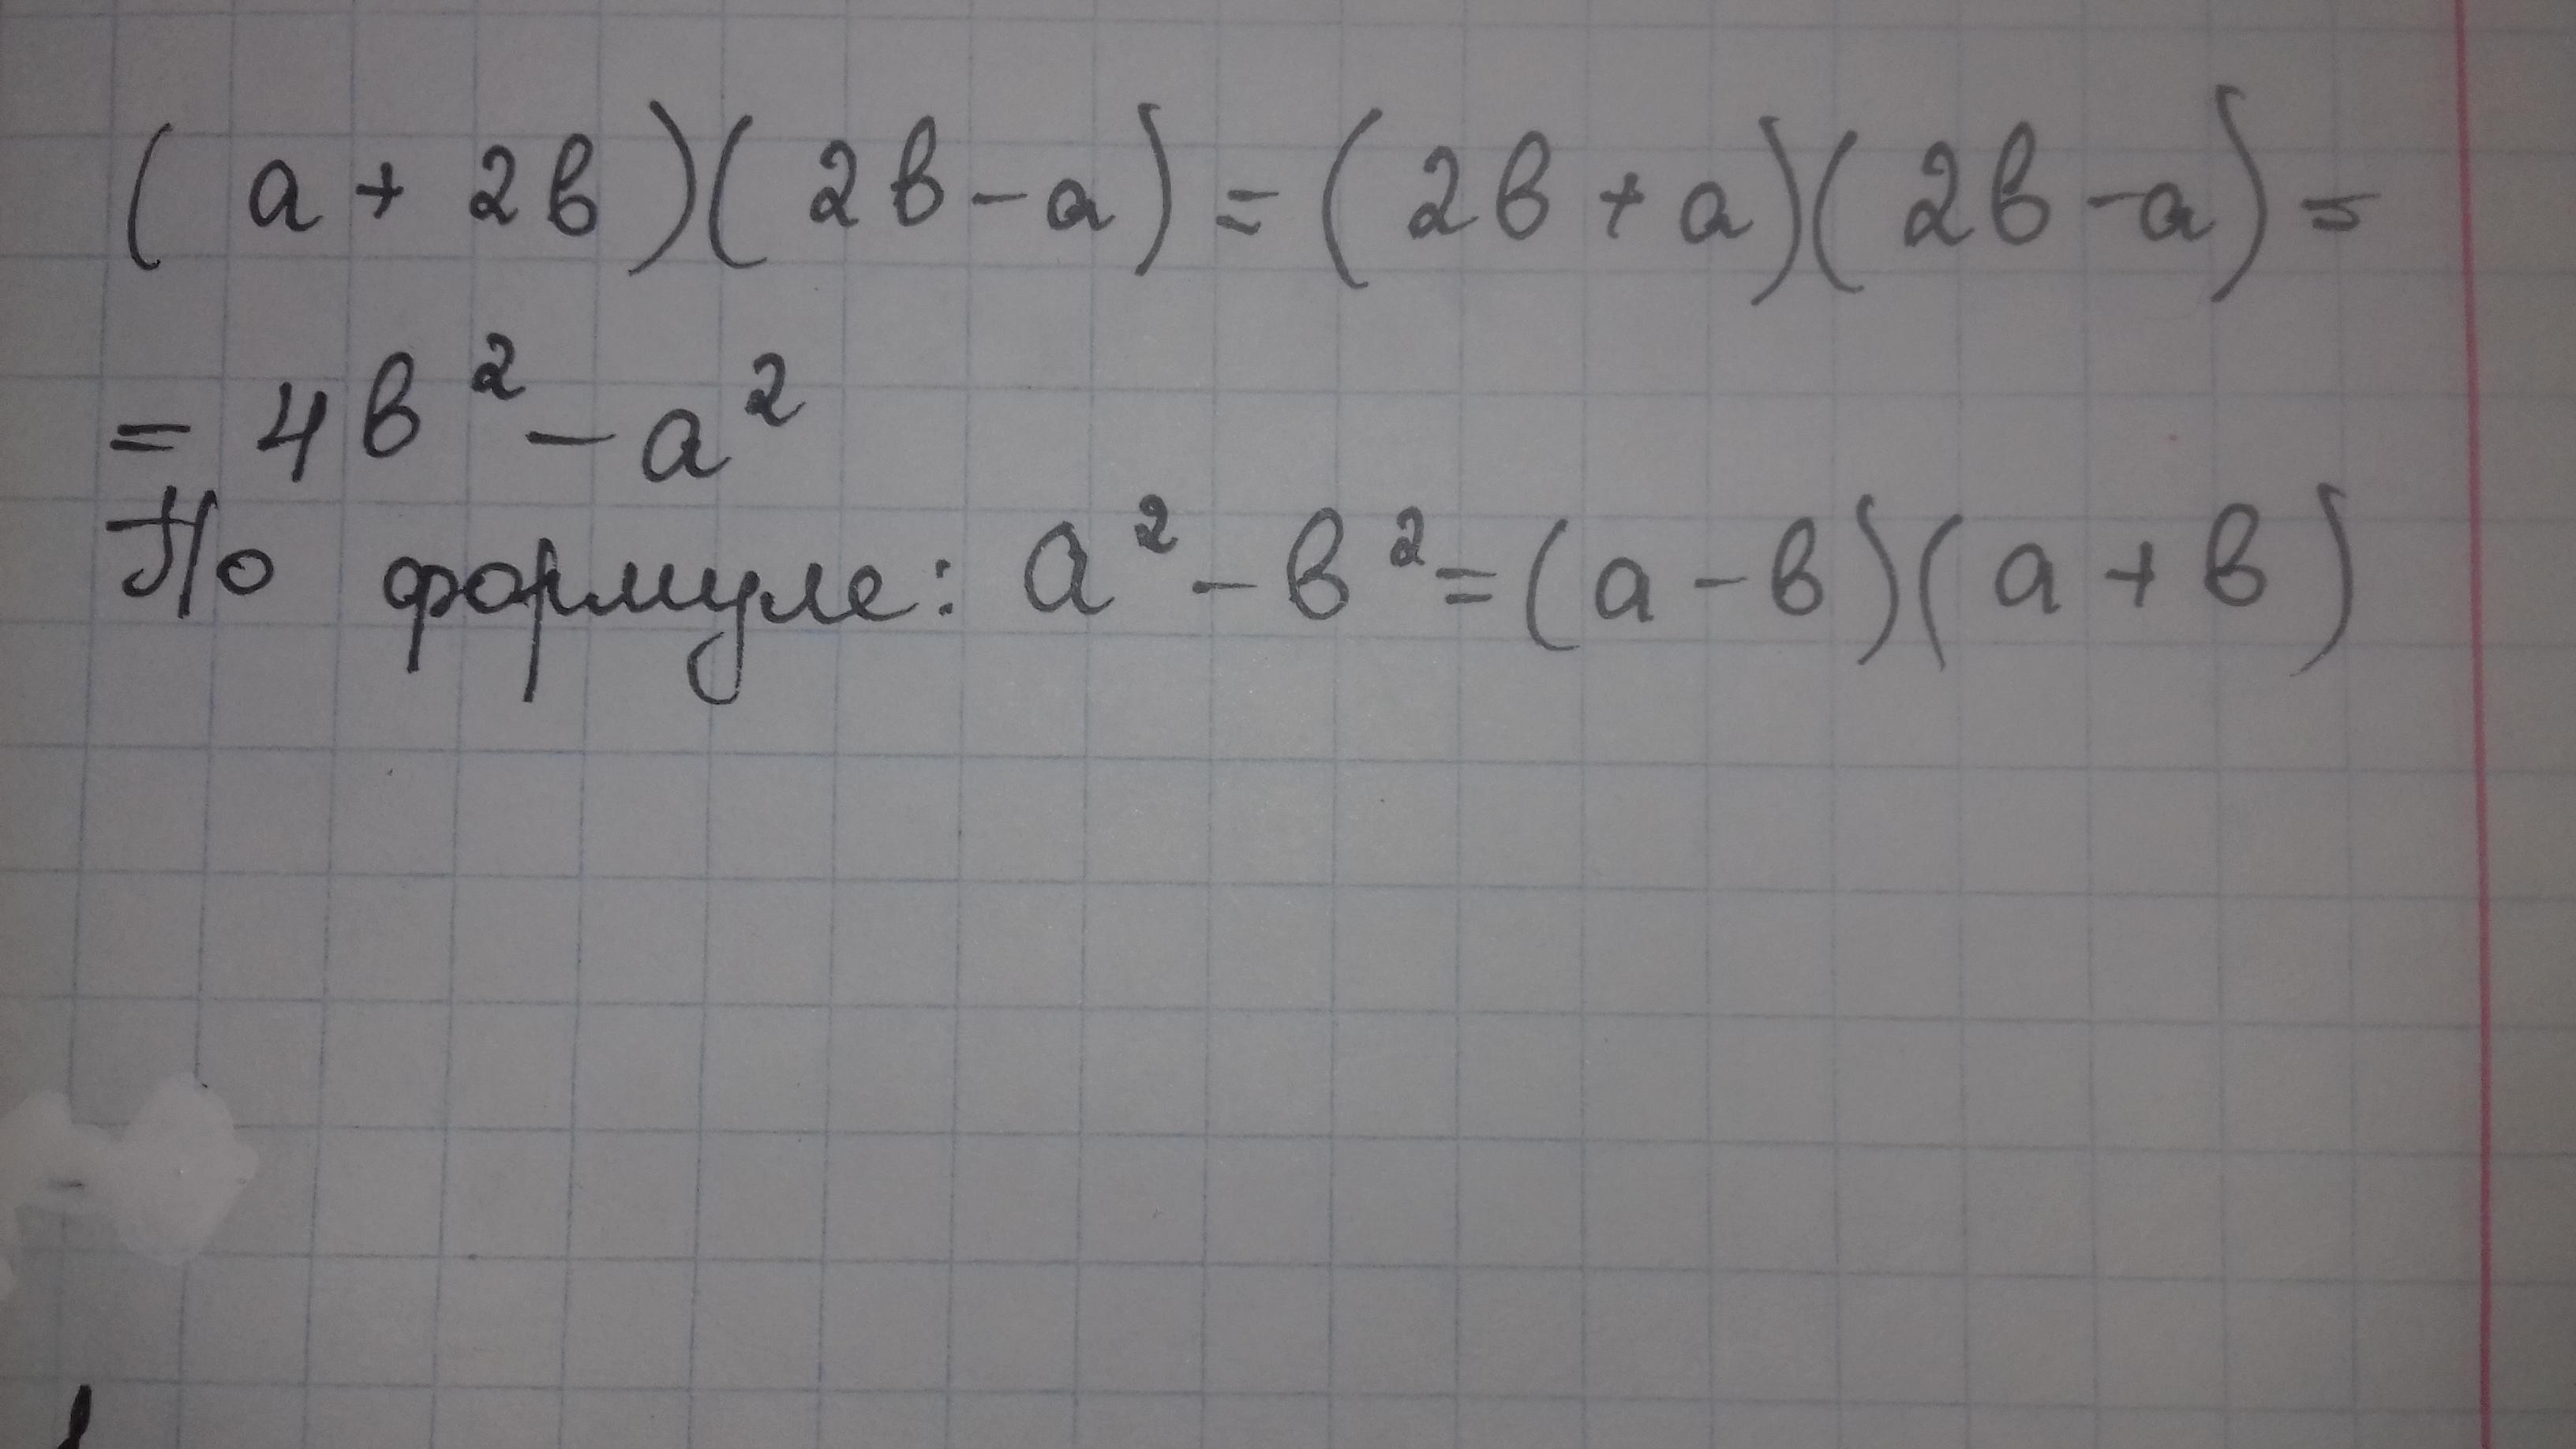 (a + 2b)(2b - a) = (2b + a)(2b - a) =
= 4b² - a²
По формуле: a² - b² = (a - b)(a + b)